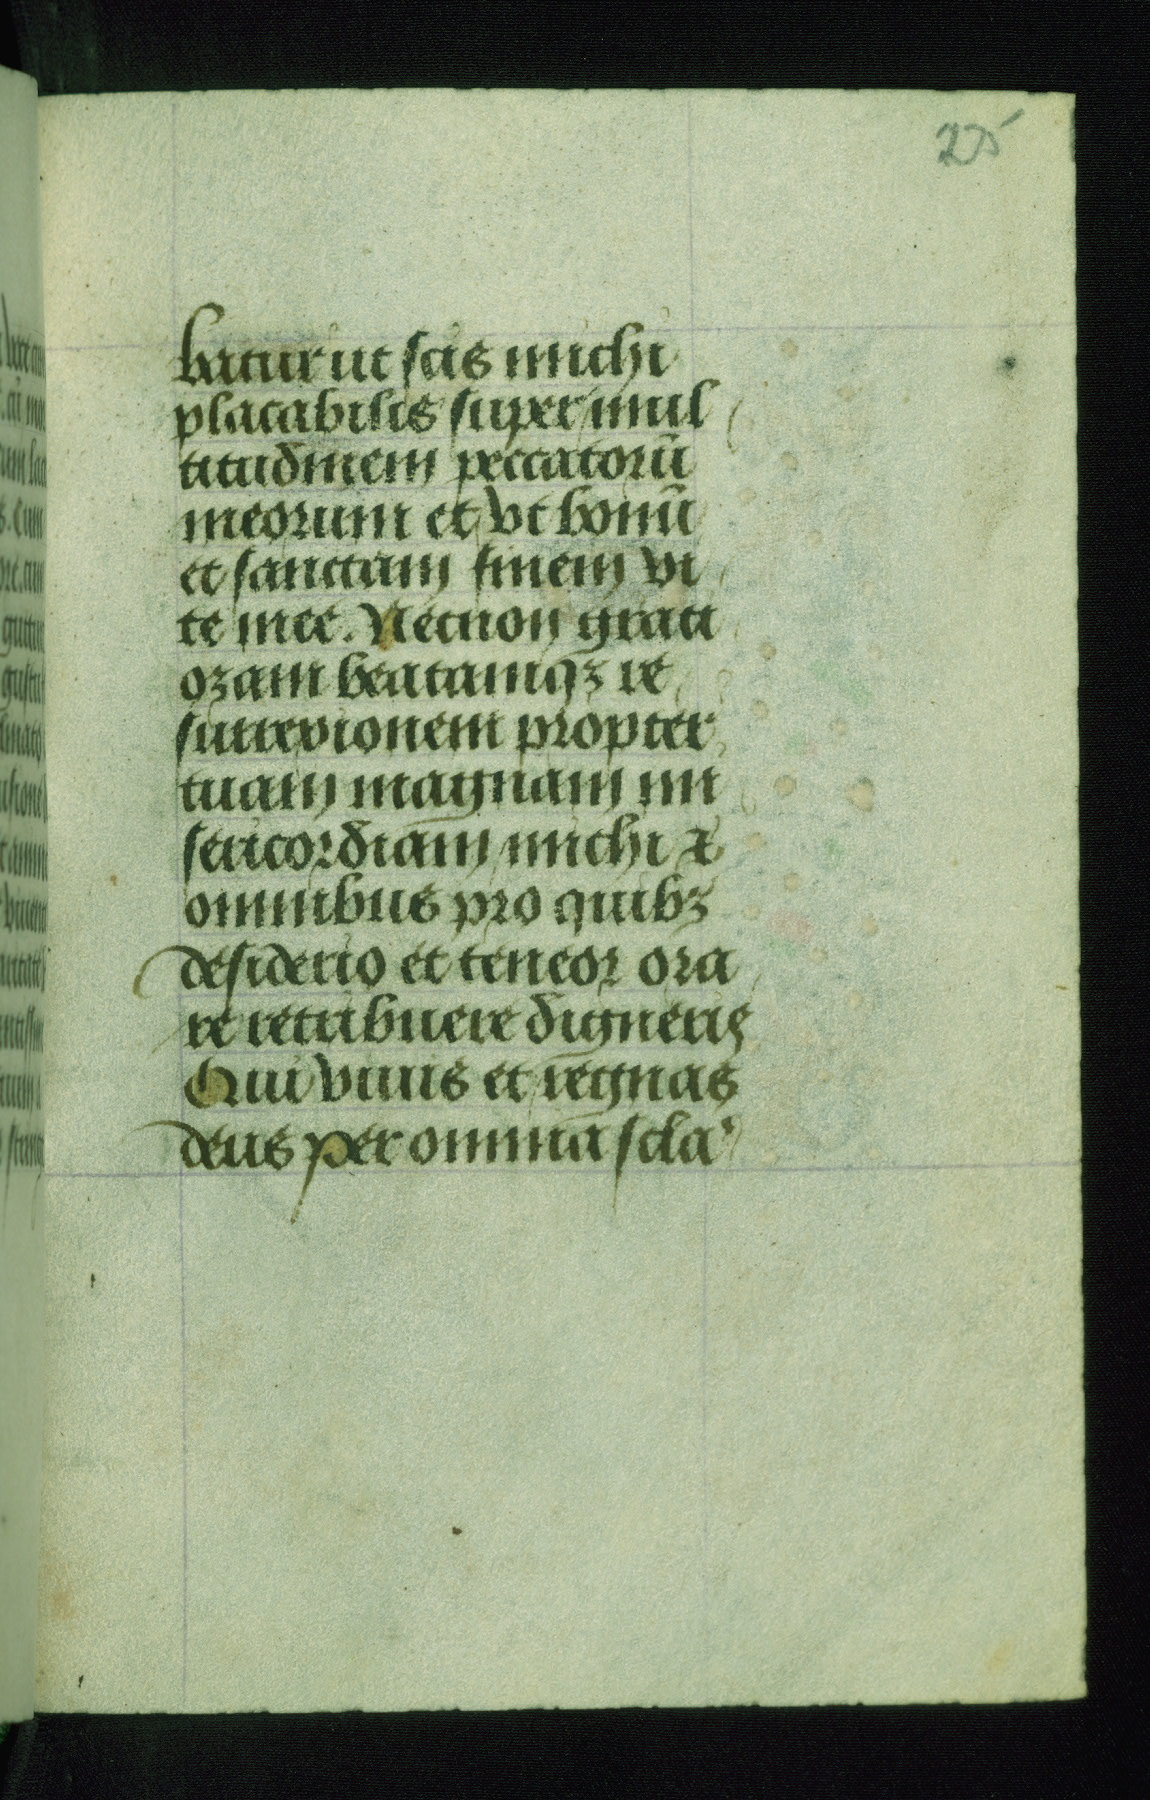 25
batur ut scis michi
placabilis super mul
titudinem peccatorū
meorum et vt bonū
et sanctam finem vi
te mee. Necnon graci
ozam beatamqz re
surrexionem propter
tuam magnam mi
sericordiam michi et
omnibus pro quibz
desiderio et teneor ora
re retribuere digneris
Qui viuis et regnas
deus per omnia scla